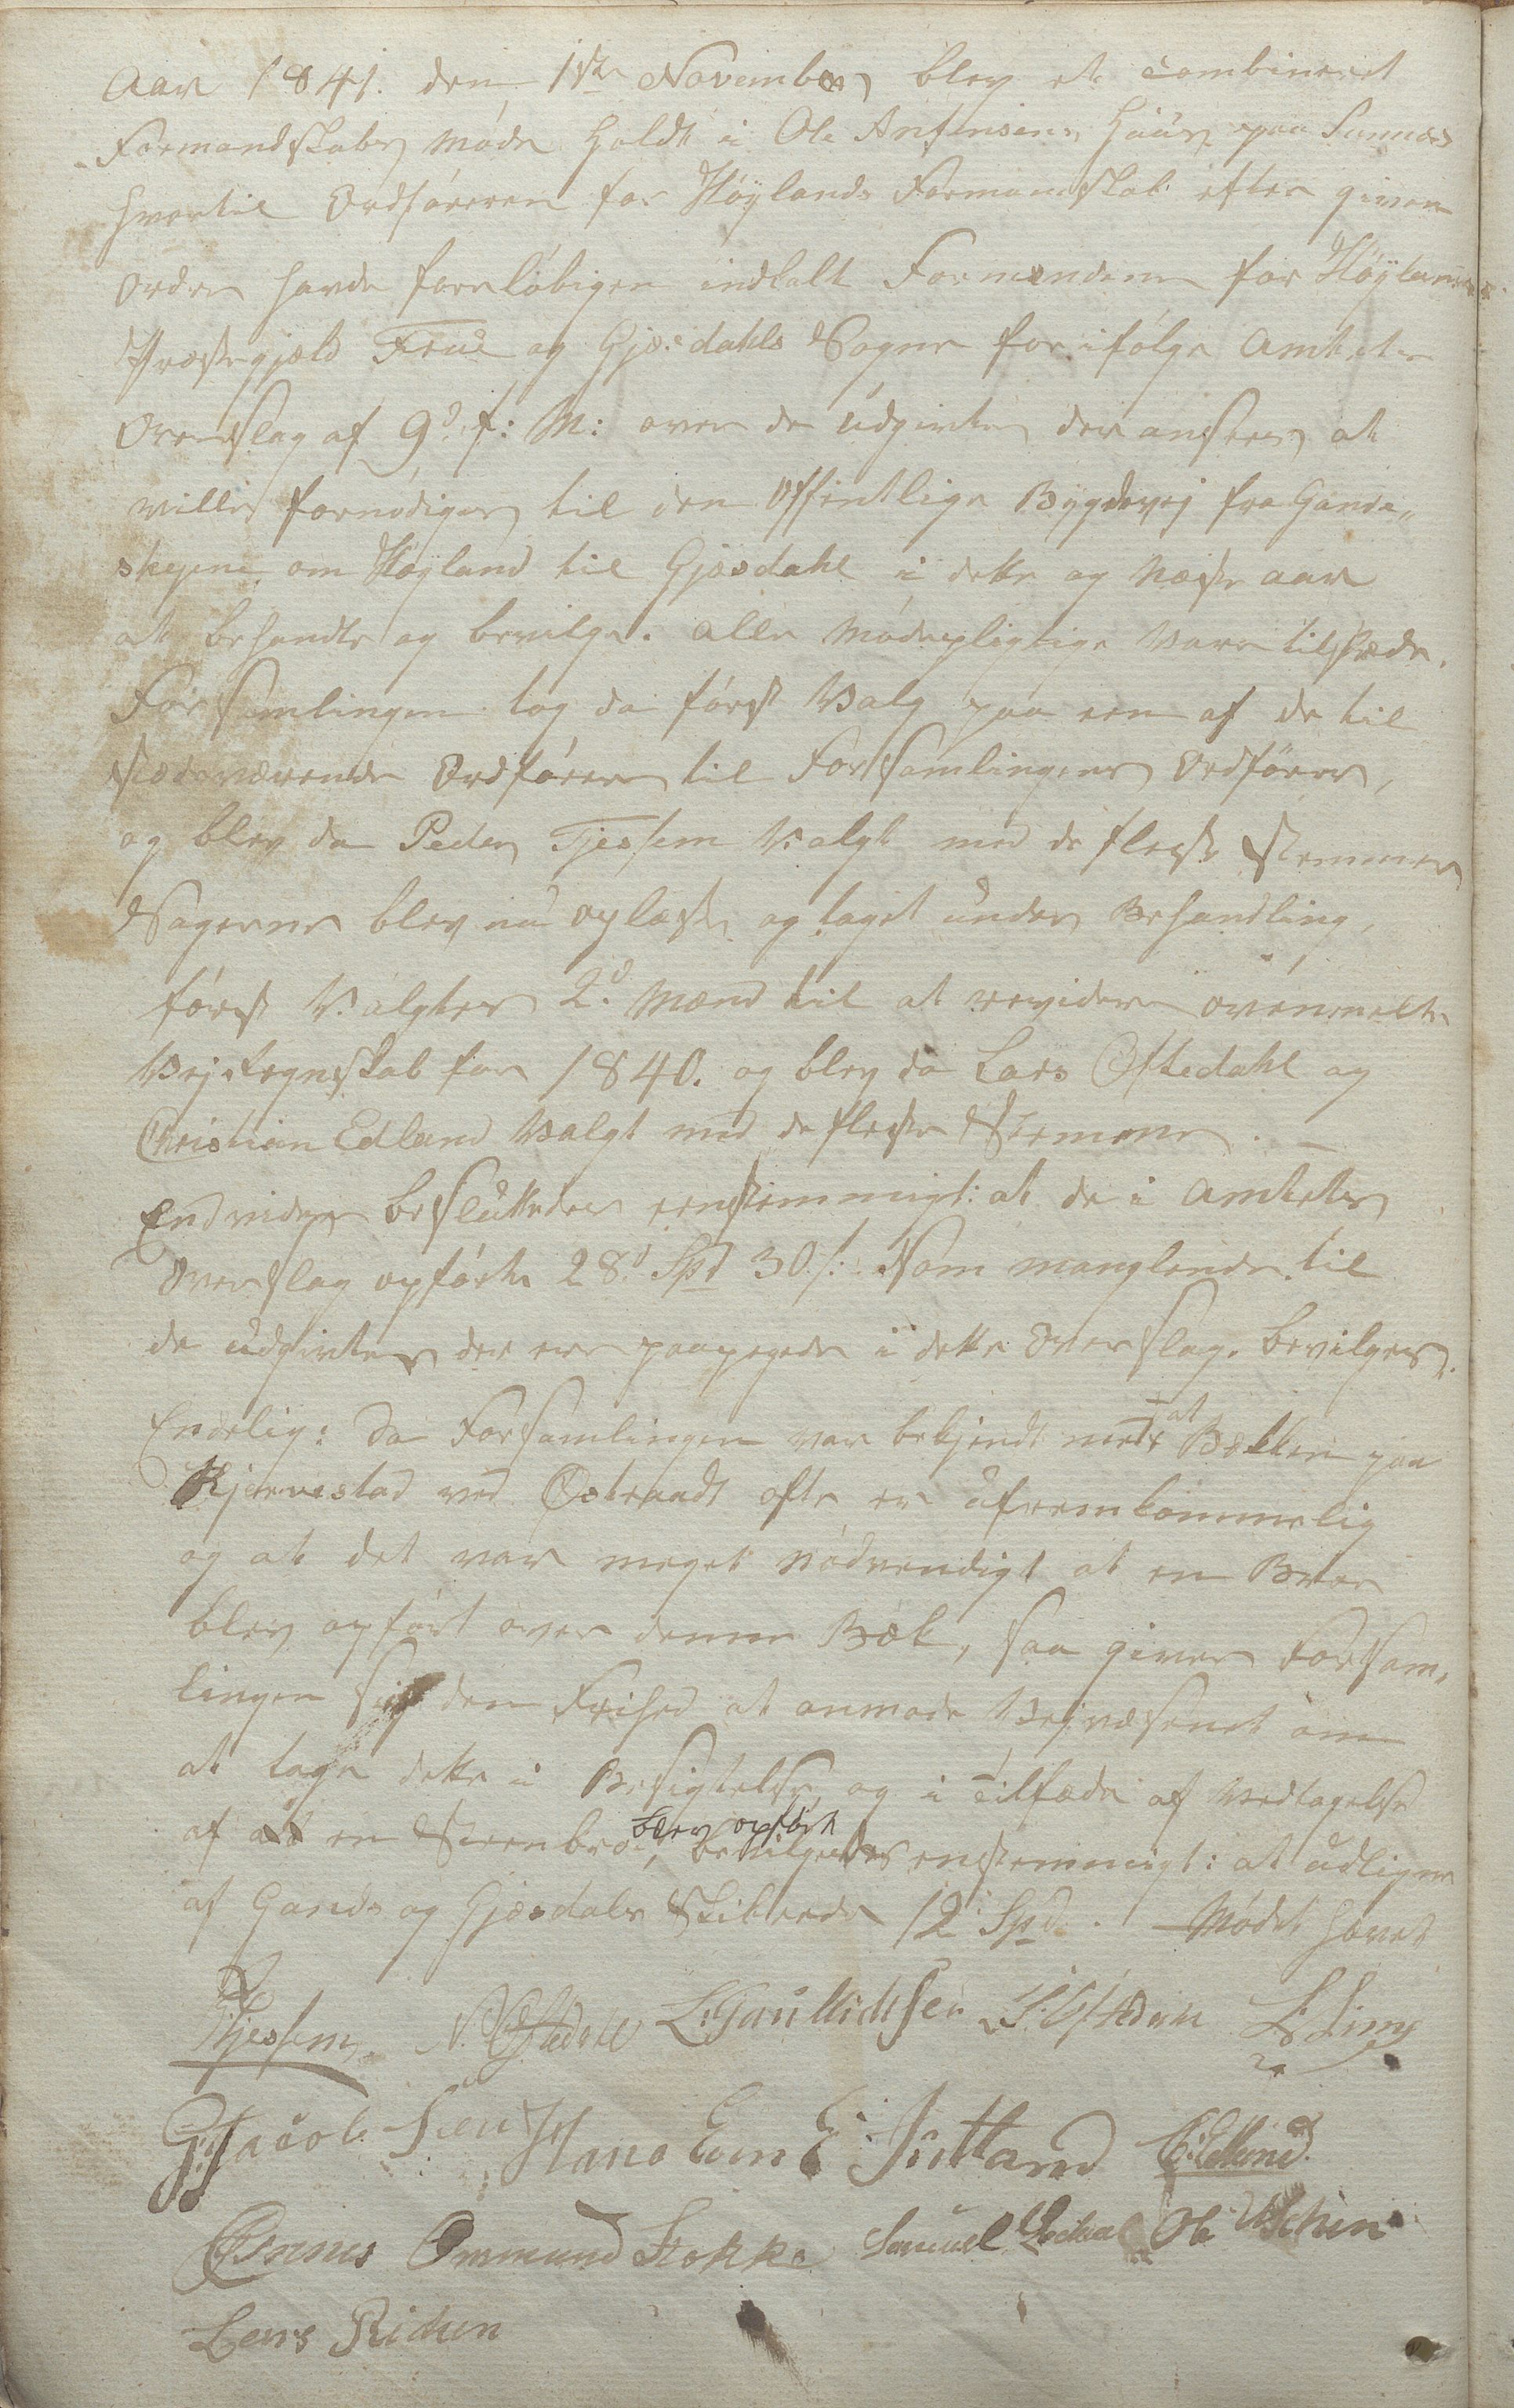 Aar 1841. den 1ste November blev et combineret
Formandskabs Møde holdt i Ole Anfinsens Huus paa Sannes
hvortil Ordføreren for Høylands Formandskab efter given
Ordre havde foreløbigen indkalt Formændene for Høylands
Præstegjeld og Gjæsdahls Sogne for ifølge Amtets
Overslag af 9d f: M: over de Udgivter der ansees at
ville fornødiges til den Offentlige Bygdevej fra Gande„
skejene om Høyland til Gjæsdahl i dette og Næste aar
at behandle og bevilge. Alle Mødepligtige Vare tilstæde.
Forsamlingen tog da først Valg paa een af de til
stædeværende Ordførere til Forsamlingens Ordfører,
og blev da Peder Tjessem Valgt med de fleste Stemmer
Sagerne blev nu oplæste og taget under Behandling,
først Valgtes 2d. Mænd til at revidere ovenmelte
Vejregnskab for 1840. og blev da Lars Oftedahl og
Christian Edland Valgt med de fleste Stemmer. —
Endvidere besluttedes eenstemmigt: at de i Amtets
Overslag opførte 28d Spd 30 s: Som manglende til
de Udgivter der ere paapegede i dette Overslag, bevilges.
Endelig: Da Forsamlingen var bekjendt med at Bækken paa
Kjervestad ved Østraadt ofte er ufremkommelig
og at det var meget Nødvendigt at en Broe
blev opført over denne Bæk, saa giver Forsam„
lingen sig den Frihed at anmode Vejvæsenet om
at tage dette i Besigtelse, og i Tilfælde af Vedtagelse
af at en Steenbroe blev opført, bevilgedes enstemmigt: at udligne
af Gands og Gjæsdals Skibrede 12 Spd. — Mødet hævet
Tjessem N. Oftedahl L: Gaulticksen L. Oftedahl L Lima
G: Jacob Hans E Jutland C: Edland
Ommund Stokke Samuel Ole
Lars